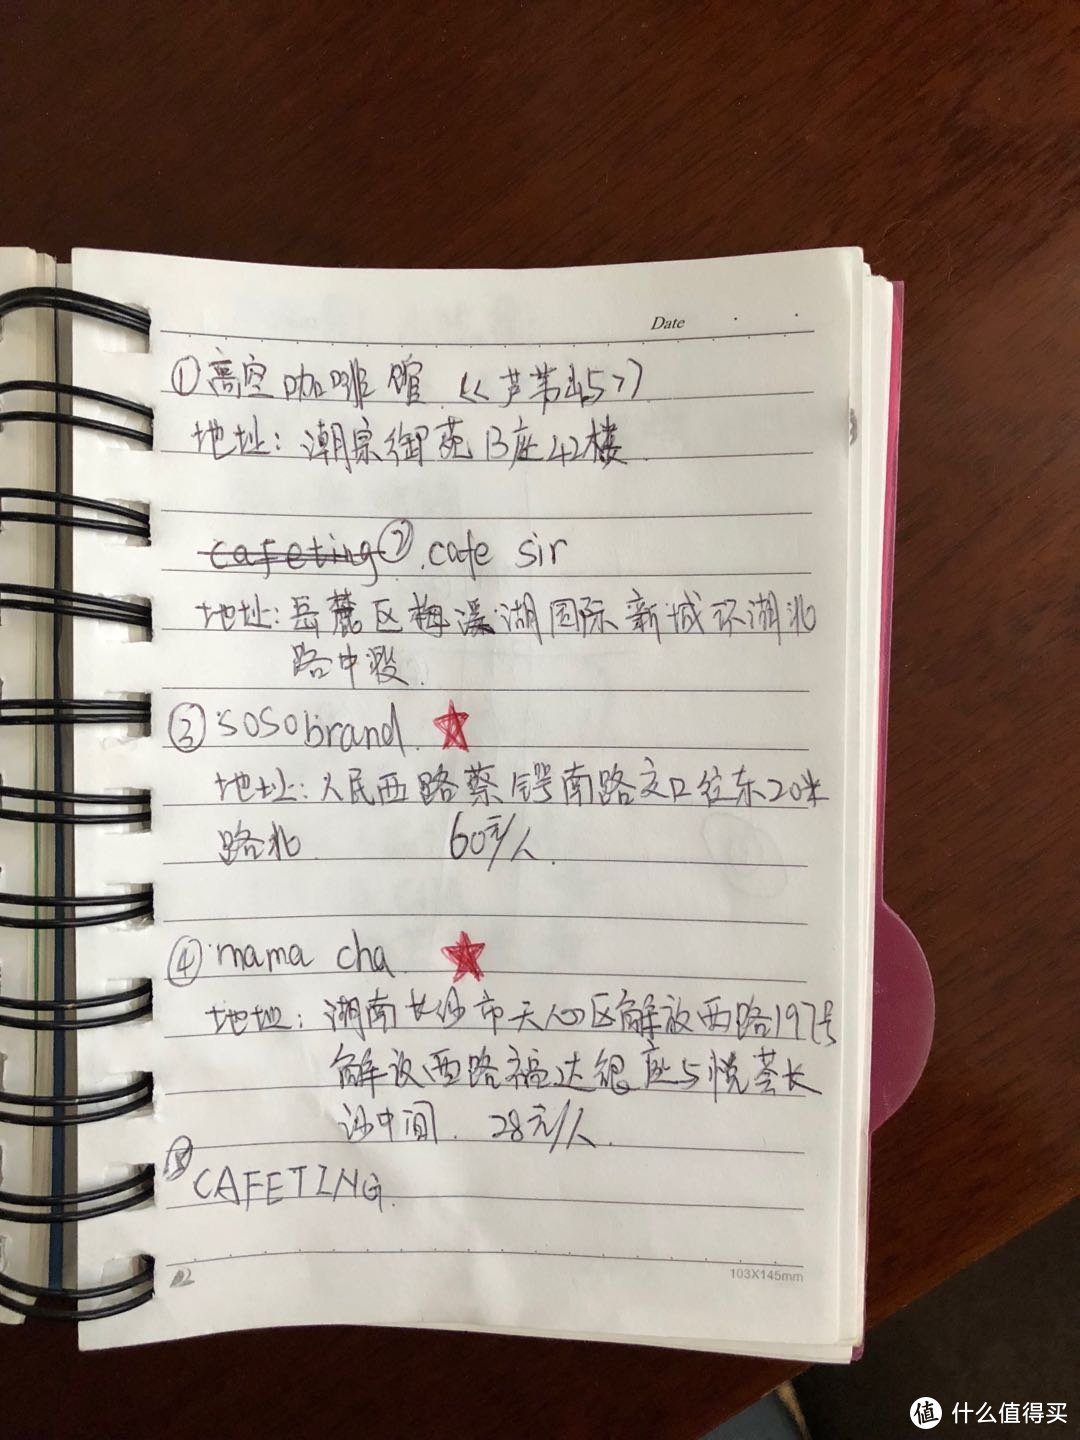 Date
①高空咖啡馆《芦苇45》
地址：潮宗御苑B座42楼.
cafeting②.cafe sir
地址：岳麓区梅溪湖国际新城环湖北
路中段.
③sosobrand.
地址：人民西路蔡锷南路交口往东20米
路北 60元/人.
④mama cha.
地址：湖南长沙市天心区解放西路197号
解放西路福达银座与悦荟长
沙中间. 28元/人.
CAFETING.
103X145mm
值 什么值得买